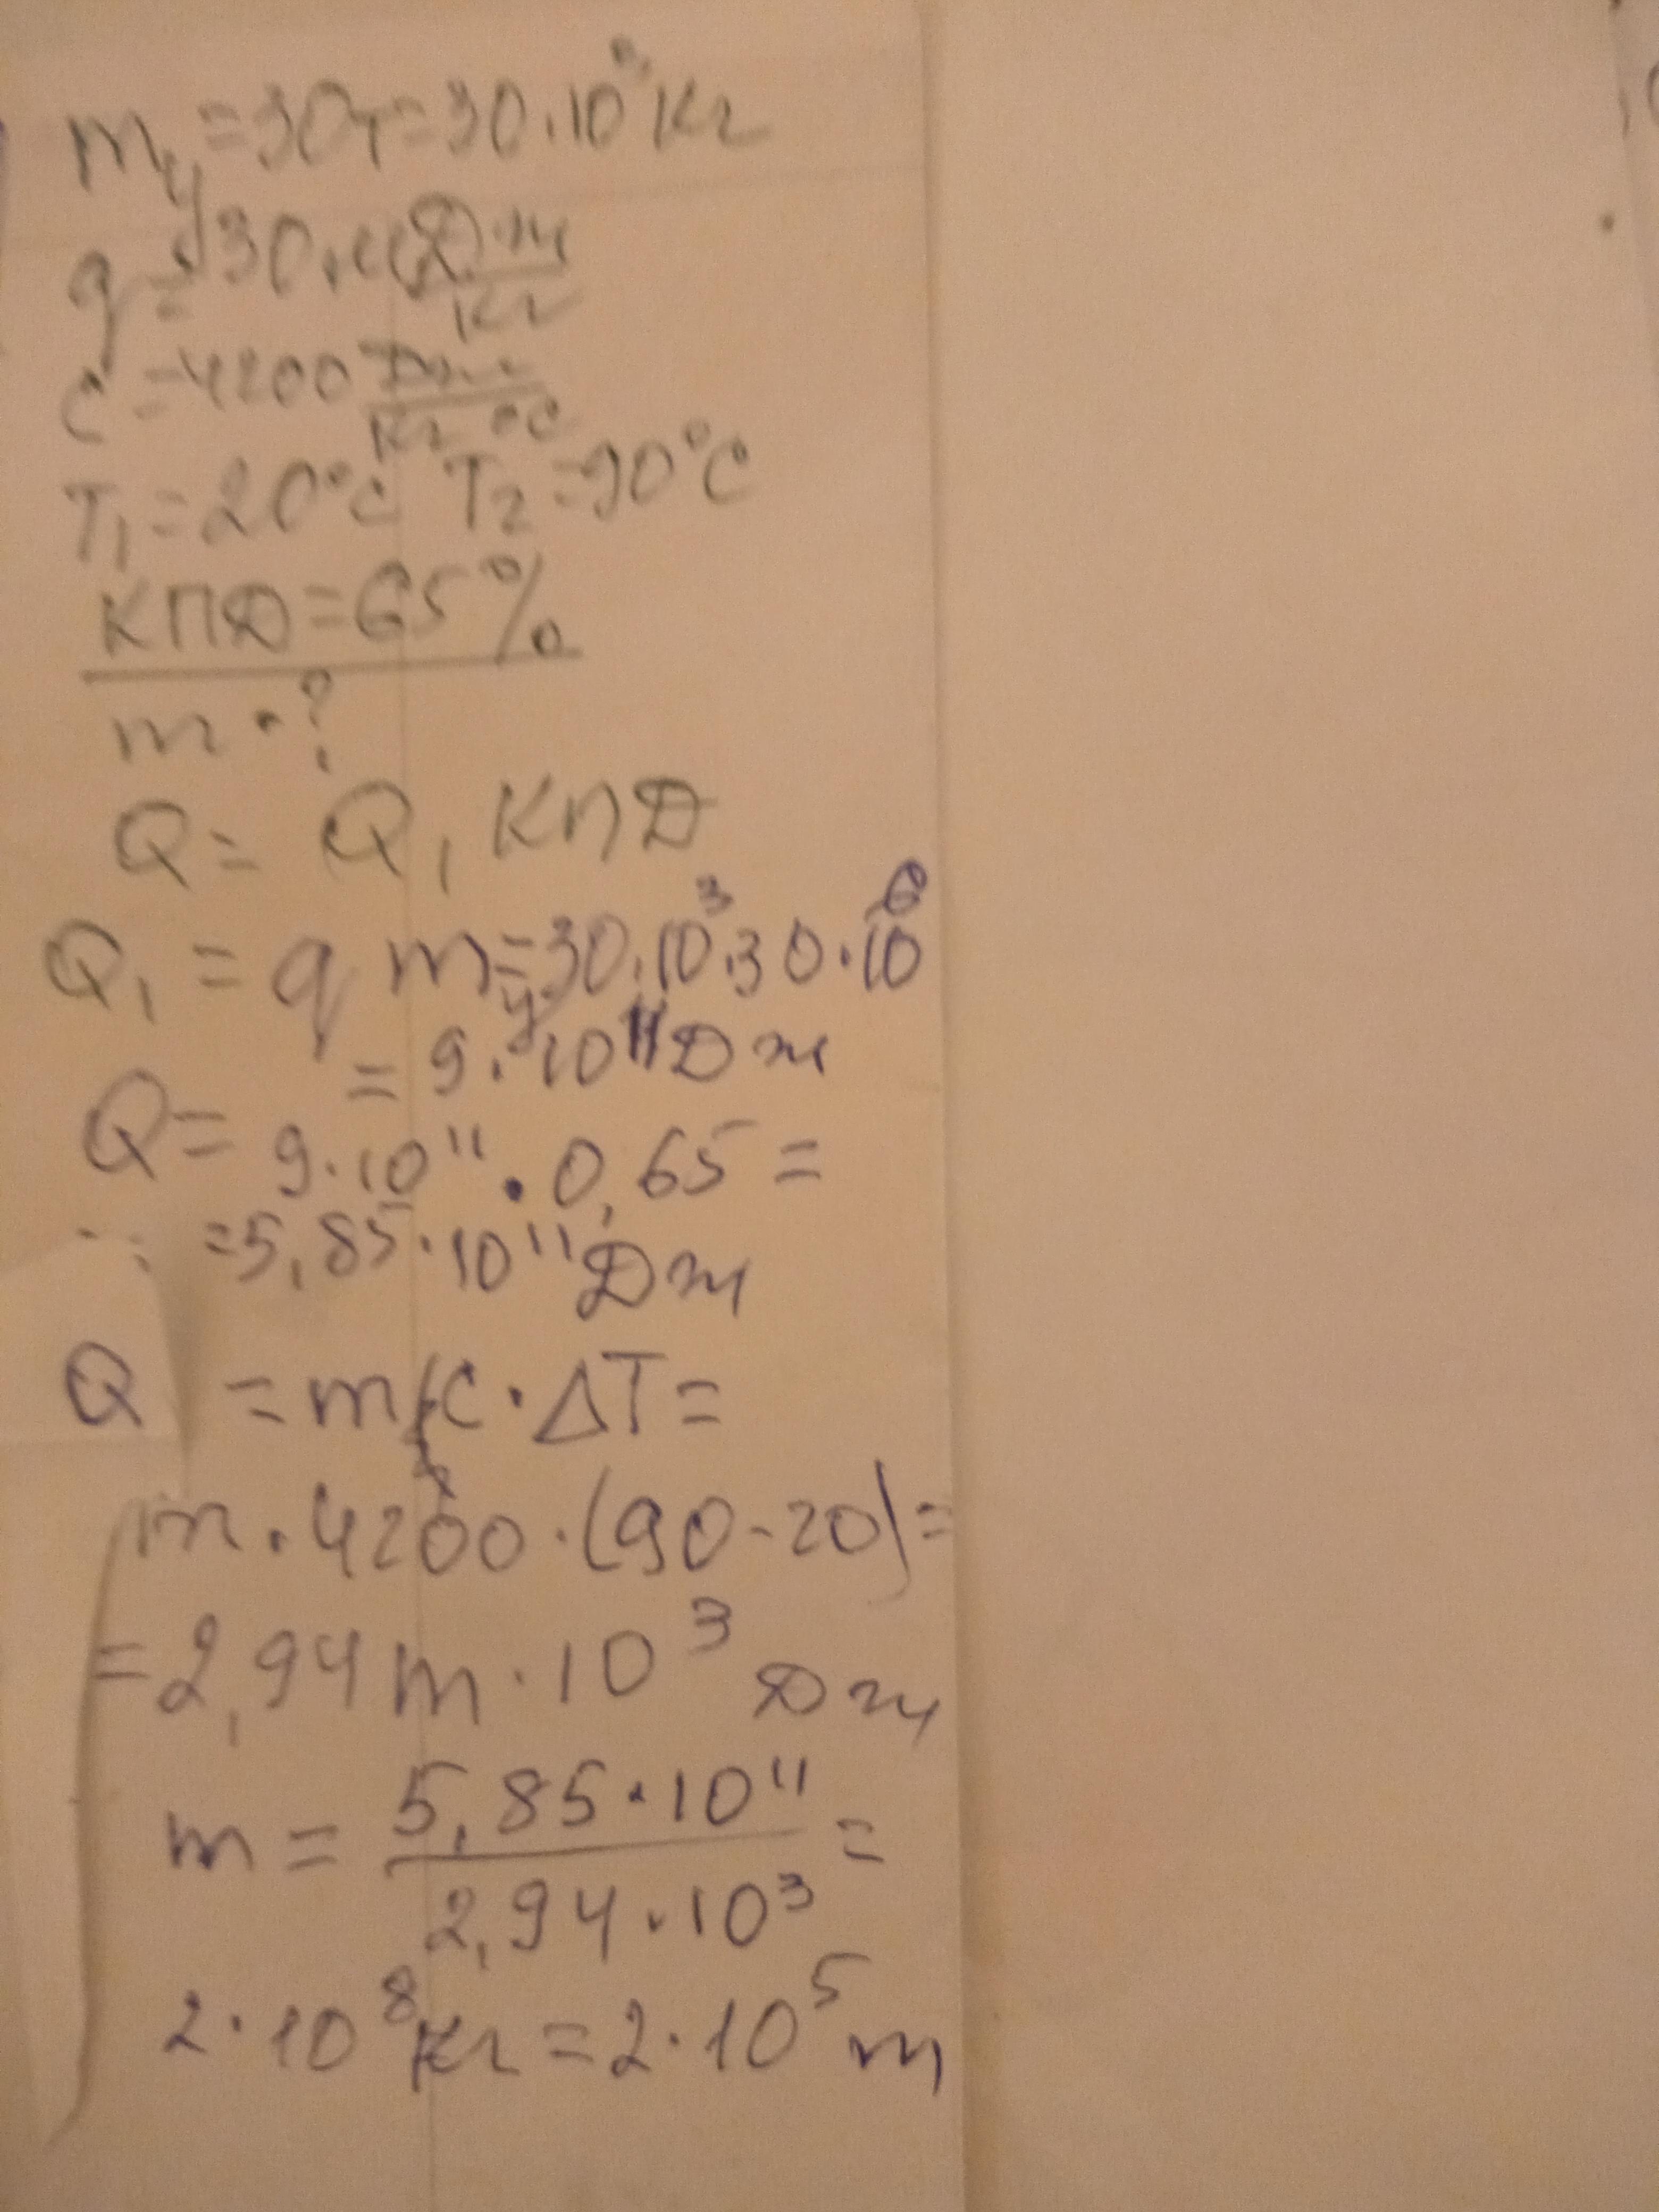 mу = 30т = 30.10³ кг
q = 30.МДж/кг
C = 4200 Дж/кг °C
T₁ = 20°C T₂ = 90°C
КПД = 65%
m - ?
Q = Q₁ КПД
Q₁ = q mу = 30.10³.30.10⁶
= 9.10¹¹ Дж
Q = 9.10¹¹ . 0,65 =
= 5,85.10¹¹ Дж
Q = m C . ΔT =
m . 4200 . (90-20) =
= 2,94 m . 10³ Дж
m = 5,85.10¹¹ / 2,94.10³ =
2.10⁸ кг = 2.10⁵ т